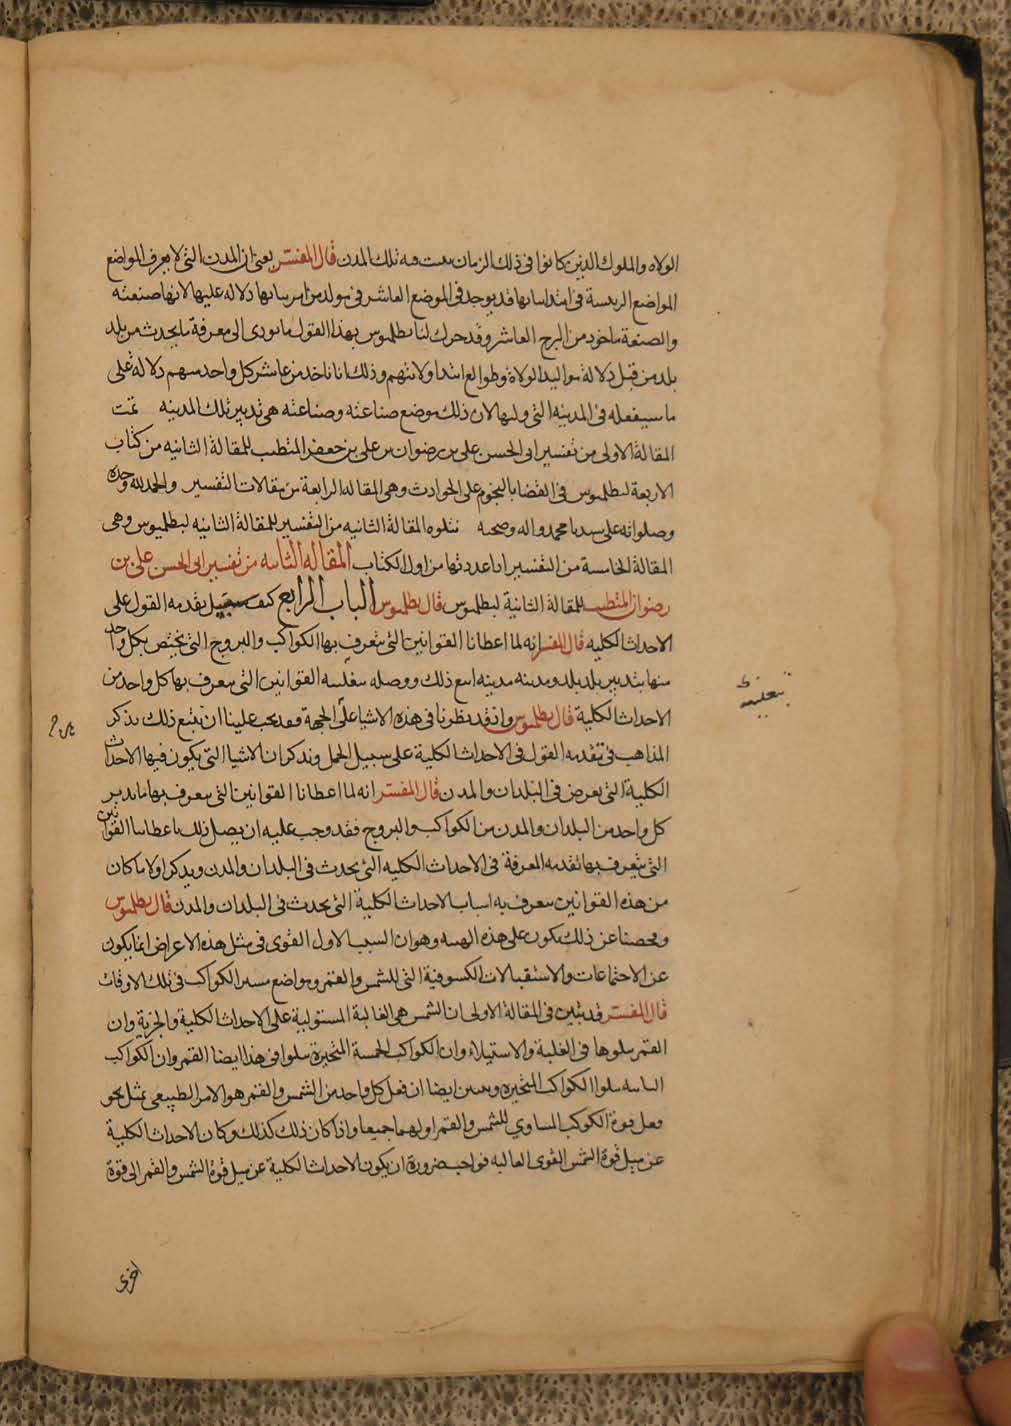 الولاه والملوك الذين كانوا فى ذلك الزمان بنيت فيه تلك المدن قال المفسر يعنى ان المدن التى لا يعرف المواضع
المواضع الرئيسة فى ابتدا بنائها قد يوجد فى الموضع العاشر فى مولد من امر ببنائها دلاله عليها لانها صنعته
والصنعة ماخوذ من البرج العاشر وقد حرك لنا بطلميوس بهذا القول ما يودى الى معرفة ما يحدث من بلد
بلد من قبل دلالة مواليد الولاة وطوالع ابتدا ولايتهم وذلك انا ناخذ من عاشر كل واحد منهم دلالة على
ما سيفعله فى المدينه التى وليها لان ذلك موضع صناعته وصناعته هى تدبير تلك المدينه تمت
المقالة الاولى من تفسير ابى الحسن على بن رضوان بن على بن جعفر المتطبب للمقالة الثانيه من كتاب
الاربعة لبطلميوس فى القضايا بالنجوم على الحوادث وهى المقاله الرابعة من مقالات التفسير والحمد لله وحده
وصلواته على سيدنا محمد واله وصحبه نتلوه المقالة الثانيه من التفسير للمقالة الثانيه لبطلميوس وهى
المقالة الخامسة من التفسير اذا عددتها من اول الكتاب المقاله الثانيه من تفسير ابى الحسن على بن
رضوان المتطبب للمقالة الثانية لبطلميوس قال بطلميوس الباب الرابع كيف سبيل تقدمه القول على
الاحداث الكليه قال المفسر انه لما اعطانا القوانين التى يتعرف بها الكواكب والبروج التى يختص بكل واحد
منها بتدبير بلد بلد ومدينه مدينه اتبع ذلك ووصله بتعليمه القوانين التى يتعرف بها كل واحد من
الاحداث الكلية قال بطلميوس واذ قد نظرنا فى هذه الاشيا على الجهة فقد يجب علينا ان نتبع ذلك بذكر
المذاهب فى تقدمه القول فى الاحداث الكلية على سبيل الجمل ونذكر ان الاشيا التى يكون فيها الاحداث
الكلية التى يعرض فى البلدان والمدن قال المفسر انه لما اعطانا القوانين التى يتعرف بها ما يدبر
كل واحد من البلدان والمدن من الكواكب والبروج فقد وجب عليه ان يصل ذلك باعطاينا القوانين
التى يتعرف بها تقدمه المعرفة فى الاحداث الكليه التى يحدث فى البلدان والمدن ويذكر اولا ما كان
من هذه القوانين يتعرف به اسباب الاحداث الكلية التى يحدث فى البلدان والمدن قال بطلميوس
وفحصنا عن ذلك يكون على هذه الجهه وهو ان السبب الاول القوى فى مثل هذه الاعراض انما يكون
عن الاجتماعات والاستقبالات الكسوفية التى للشمس والقمر ومواضع مسير الكواكب فى تلك الاوقات
قال المفسر قد يتبين فى المقالة الاولى ان الشمس هى الغالبة المستولية على الاحداث الكلية والجزية وان
القمر يتلوها فى الغلبة والاستيلاء وان الكواكب الخمسة المتحيرة يتلوا فى هذا ايضا القمر وان الكواكب
الثابته يتلوا الكواكب المتحيره وتبين ايضا ان فعل كل واحد من الشمس والقمر هو الامر الطبيعى بمثل نحو
فعل قوة الكوكب المساوي للشمس والقمر او لهما جميعا واذا كان ذلك كذلك وكان الاحداث الكلية
عن ميل قوة الشمس القوى العاليه فواجب ضرورة ان يكون الاحداث الكلية عن ميل قوة الشمس والقمر الى قوة
اخرى